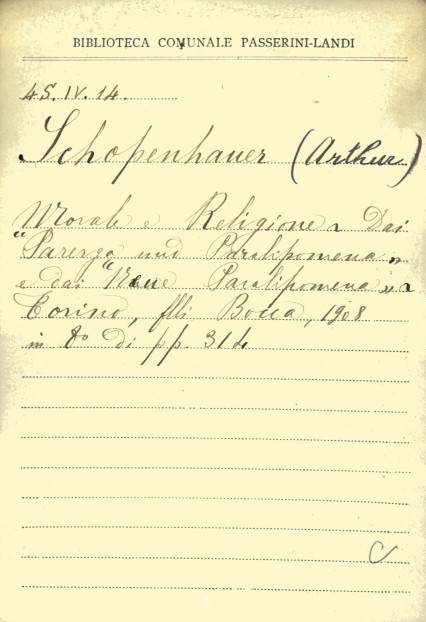 BIBLIOTECA COMUNALE PASSERINI-LANDI
45.IV.14.
Schopenhauer (Arthur)
Morale e Religione Dai
"Parerga und Paralipomena"
e dai "Neue Paralipomena"
Torino, flli Bocca, 1908
in 8° di pp. 314